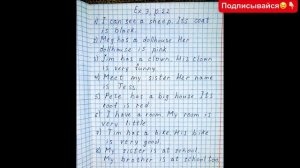 Подписывайся
Ex 3, p.22
1) I can see a sheep. Its coat
is black.
2) Meg has a dollhouse Her
dollhouse is pink
3) Jim has a clown. His clown
is very funny.
4) Meet my sister Her name
is Tess.
5) Pete has a big house Its
roof is red.
6) I have a room. My room is
very little.
7) Tim has a bike. His bike
is very good.
8) My sister is at school.
My brother is at school too.